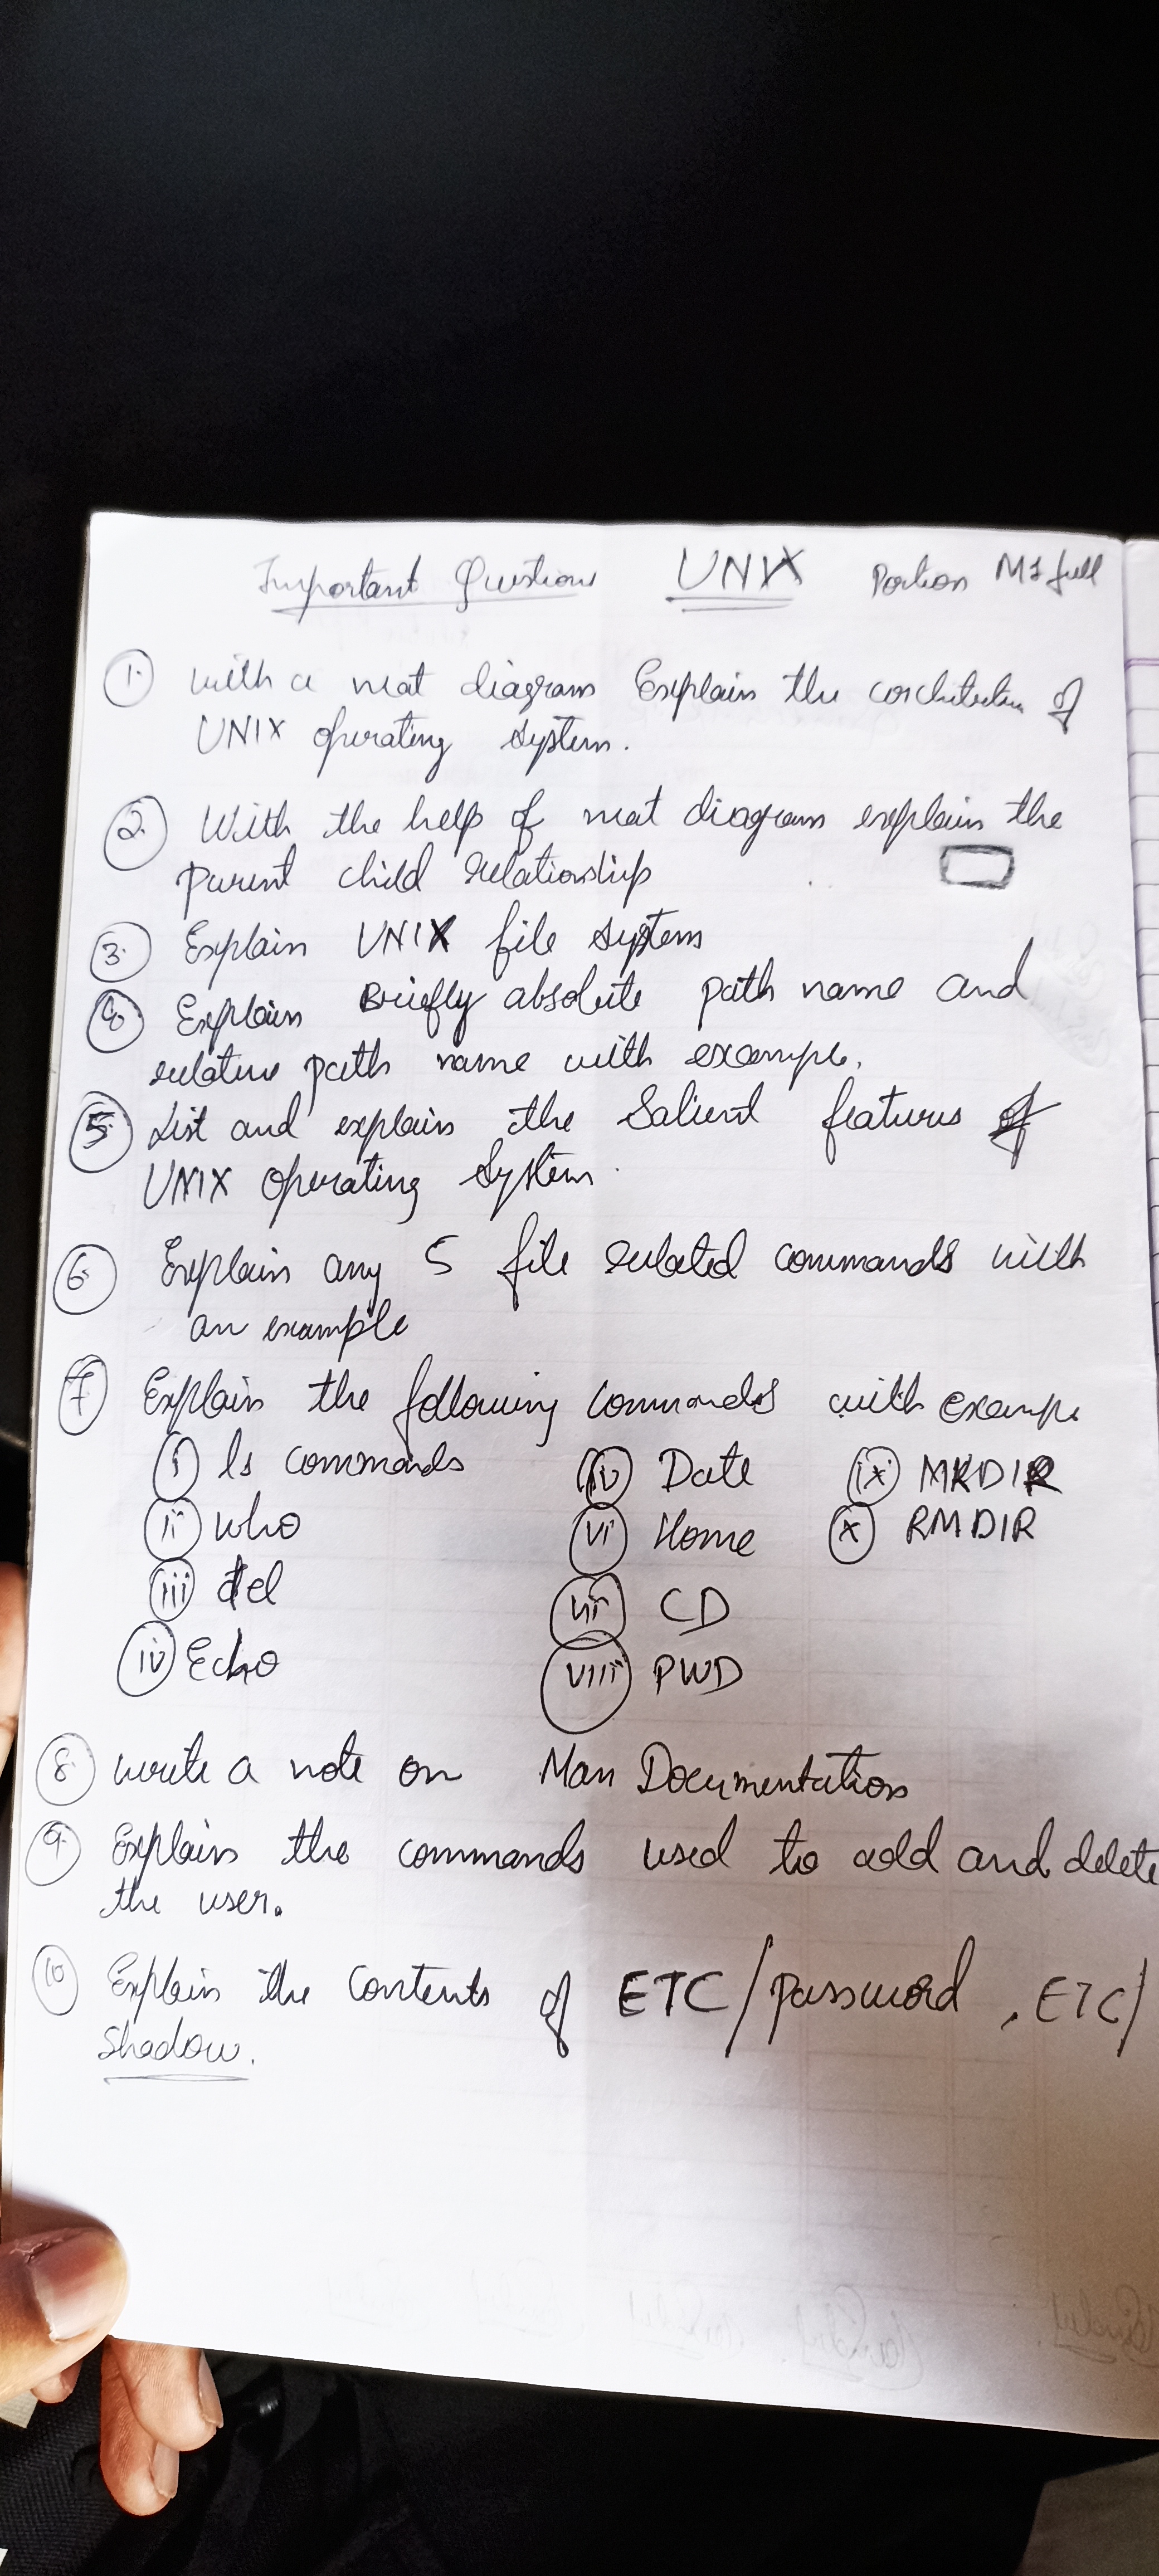 Important Questions UNIX Portion M1 full
1. with a neat diagram Explain the of
UNIX operating system.
2. With the help of neat diagram explain the
parent child relationship
3. Explain UNIX file system
4. Explain Briefly absolute path name and
relative path name with example.
5. List and explain the Salient features of
UNIX operating System.
6. Explain any 5 file related commands with
an example
7 Explain the following commands with example
i ls commands iv Date ix MKDIR
ii who vi Home x RMDIR
iii vii CD
iv Echo viii PWD
8. write a note on Man Documentation
9. Explain the commands used to add and delete
the user.
10 Explain the contents of ETC/password, ETC/
Shadow.